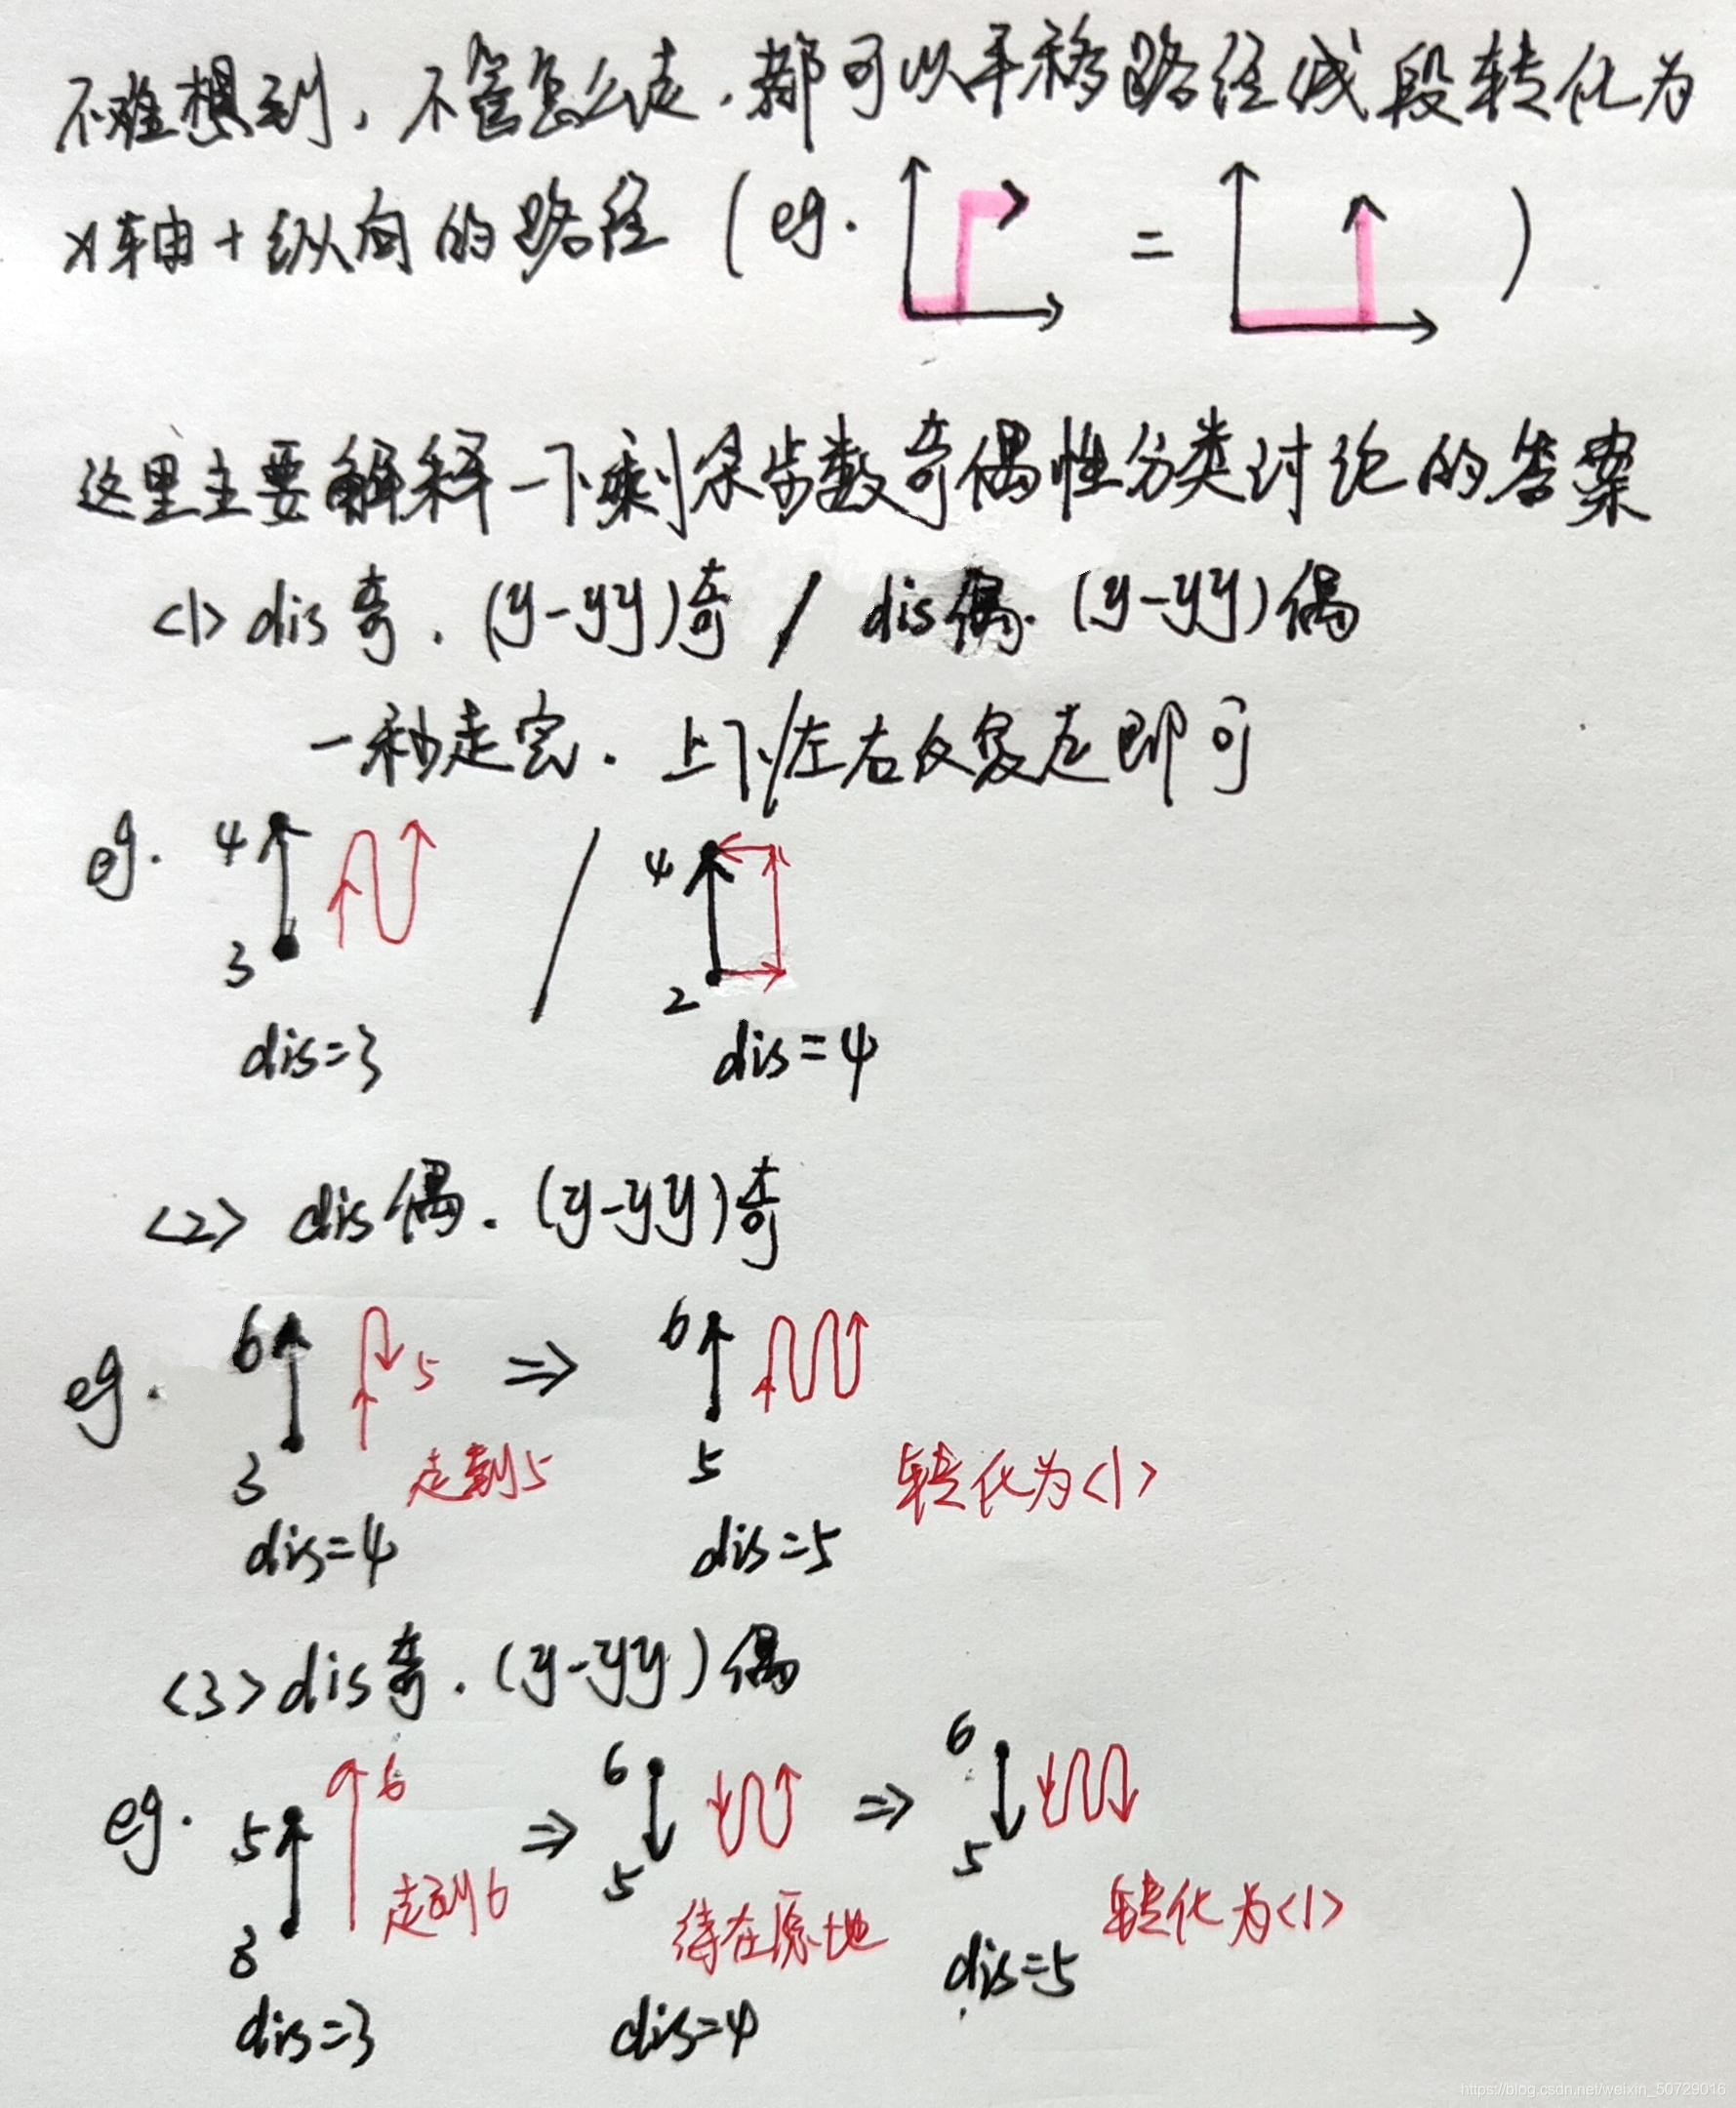 不难想到，不管怎么走，都可以平移路径线段转化为
x轴+纵向的路径（eg. = ）
这里主要解释一下剩余步数奇偶性分类讨论的答案
<1> dis奇.(y-yy)奇 / dis偶.(y-yy)偶
一秒走完.上下/左右反复走即可
eg. 4 3 / 4 2
dis=3 dis=4
<2> dis偶.(y-yy)奇
eg. 6 3 5 => 6 5
走到5 转化为<1>
dis=4 dis=5
<3> dis奇.(y-yy)偶
eg. 5 3 6 => 6 5 => 6 5
走到6 待在原地 转化为<1>
dis=3 dis=4 dis=5
https://blog.csdn.net/weixin_50729016